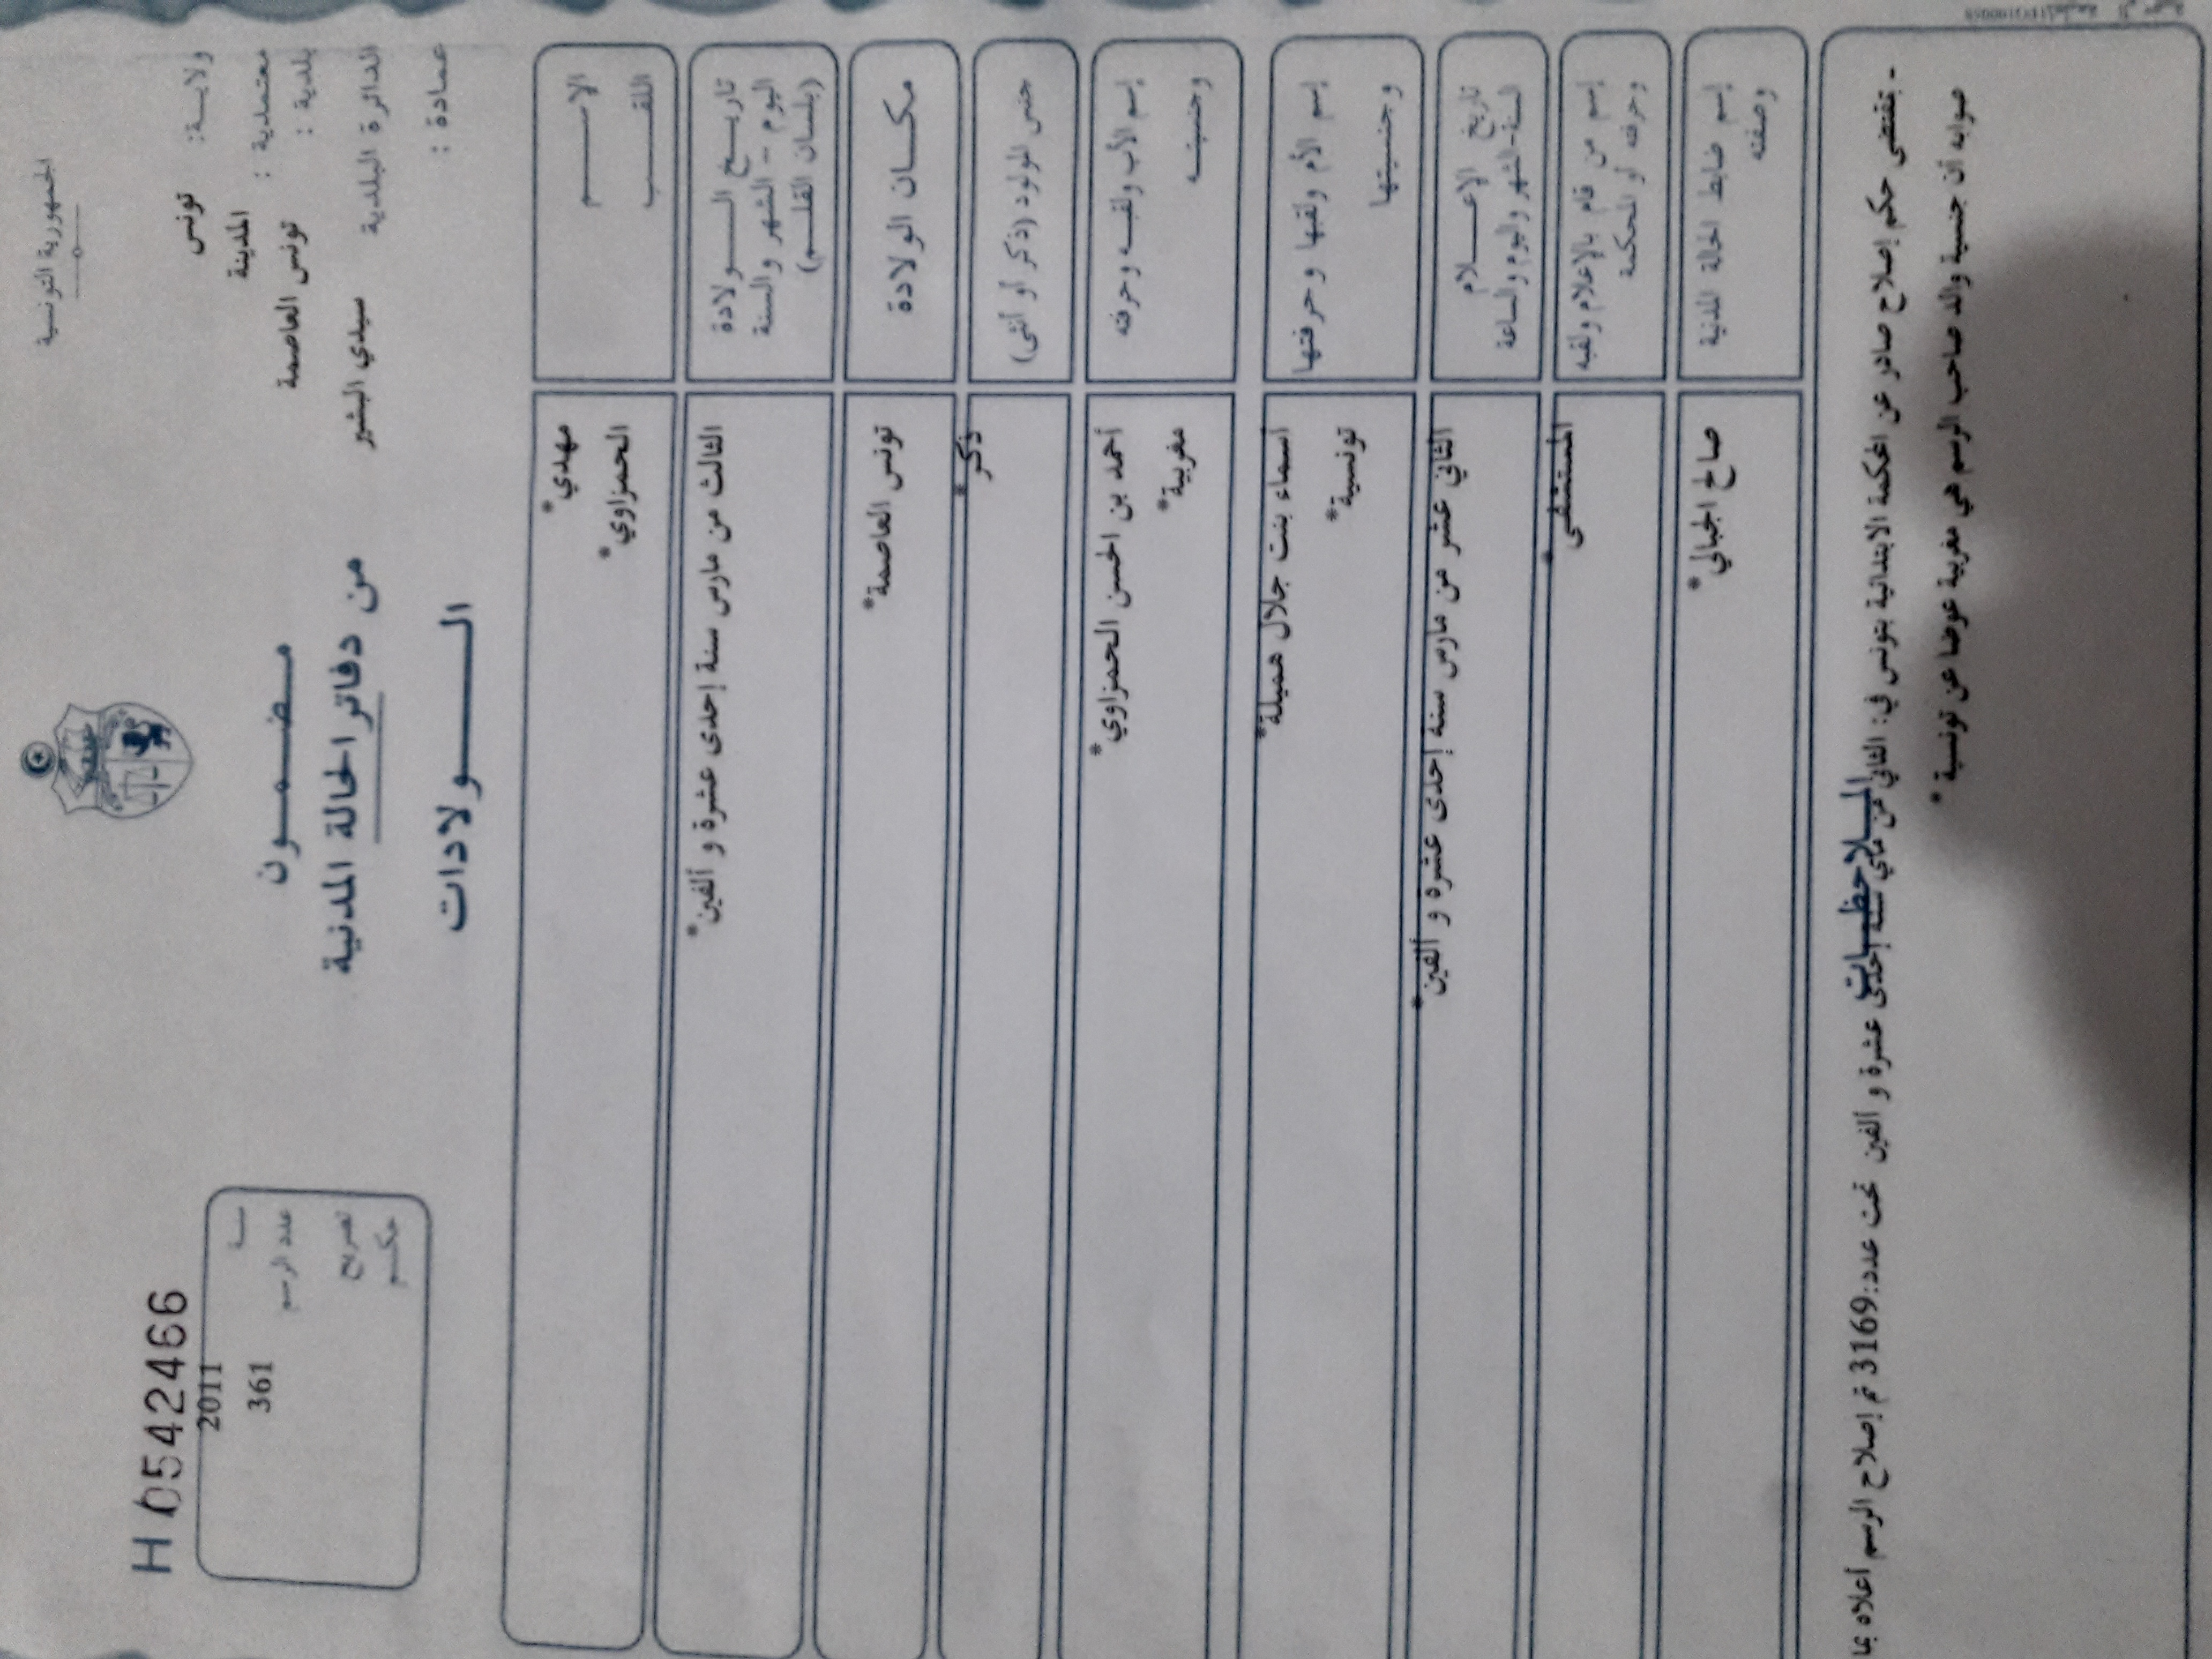 الجمهورية التونسية
ولايــة: تونس
معتمدية : المدينة
بلدية : تونس العاصمة
الدائرة البلدية سيدي البشير
عمادة :
مـضـمـون
من دفاتر الحالة المدنية
الـــولادات
H 0542466
سنة 2011
عدد الرسم 361
تصريح
حكم
الإســم مهدي*
اللقــب الحمزاوي*
تاريــخ الــولادة
اليوم – الشهر والسنة
(بلسان القلــم)
الثالث من مارس سنة إحدى عشرة و ألفين*
مكــان الولادة تونس العاصمة*
جنس المولود (ذكر أو أنثى) ذكر*
إسم الأب ولقبــه وحرفته أحمد بن الحسن الحمزاوي*
وجنسيتــه مغربية*
إسم الأم ولقبها وحرفتها أسماء بنت جلال هميلة*
وجنسيتها تونسية*
تاريخ الإعــلام
السنة-الشهر واليوم والساعة
الثاني عشر من مارس سنة إحدى عشرة و ألفين*
إسم من قام بالإعلام ولقبه
وحرفته أو المحكمة
المستشفى*
إسم ضابط الحالة المدنية
وصفته
صالح الجبالي*
المــلاحظــات
- بمقتضى حكم إصلاح صادر عن المحكمة الابتدائية بتونس في: الثاني من ماي سنة إحدى عشرة و ألفين تحت عدد:3169 تم إصلاح الرسم أعلاه بما
صوابه أن جنسية والد صاحب الرسم هي مغربية عوضا عن تونسية*